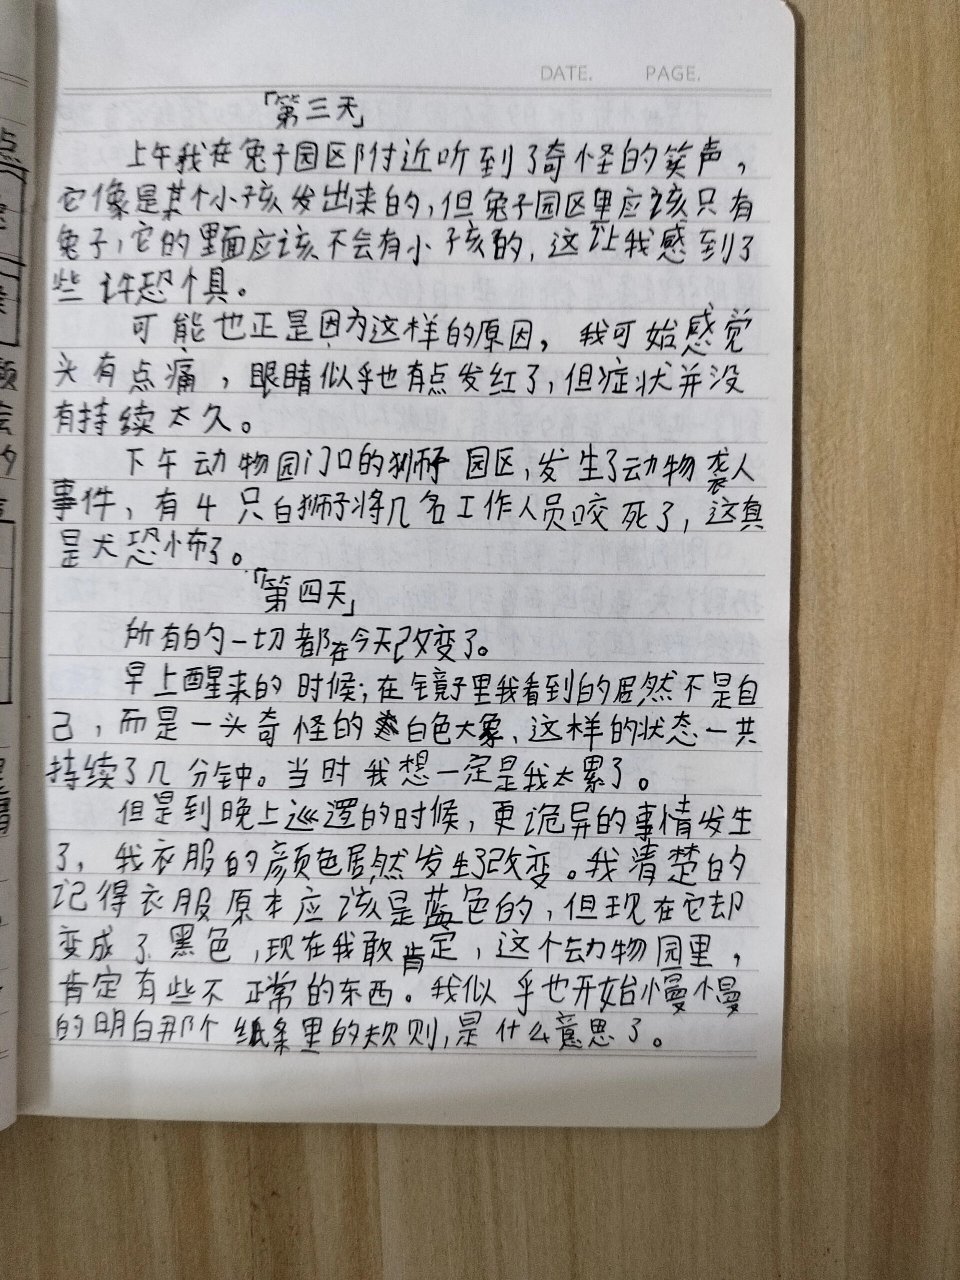 DATE. PAGE.
「第三天」
上午我在兔子园区附近听到了奇怪的笑声，
它像是某个小孩发出来的，但兔子园区里应该只有
兔子，它的里面应该不会有小孩的，这让我感到了
些许恐惧。
可能也正是因为这样的原因，我可始感觉
头有点痛，眼睛似乎也有点发红了，但症状并没
有持续太久。
下午动物园门口的狮子园区，发生了动物袭人
事件，有4只白狮子将几名工作人员咬死了，这真
是太恐怖了。
「第四天」
所有的一切都在今天改变了。
早上醒来的时候；在镜子里我看到的居然不是自
己，而是一头奇怪的白色大象，这样的状态一共
持续了几分钟。当时我想一定是我太累了。
但是到晚上巡逻的时候，更诡异的事情发生
了，我衣服的颜色居然发生了改变。我清楚的
记得衣服原本应该是蓝色的，但现在它却
变成了黑色，现在我敢肯定，这个动物园里，
肯定有些不正常的东西。我似乎也开始慢慢
的明白那个纸条里的规则，是什么意思了。